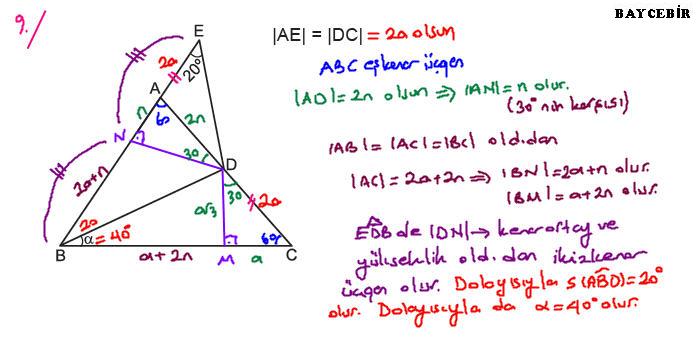 BAYCEBİR
9./
|AE| = |DC| = 2a olsun
ABC eşkenar üçgen
|AD| = 2n olsun ⟹ |AN| = n olur.
(30° nin karşısı)
|AB| = |AC| = |BC| old.dan
|AC| = 2a+2n ⟹ |BN| = 2a+n olur.
|BM| = a+2n olur.
EDB de |DN| → kenarortay ve
yükseklik old.dan ikizkenar
üçgen olur. Dolayısıyla s(ABD) = 20°
olur. Dolayısıyla da α = 40° olur.
E
2a
20°
A
n
60
2n
N
30
D
2a+n
30
2a
a√3
20
α = 40°
60
B
a+2n
M
a
C